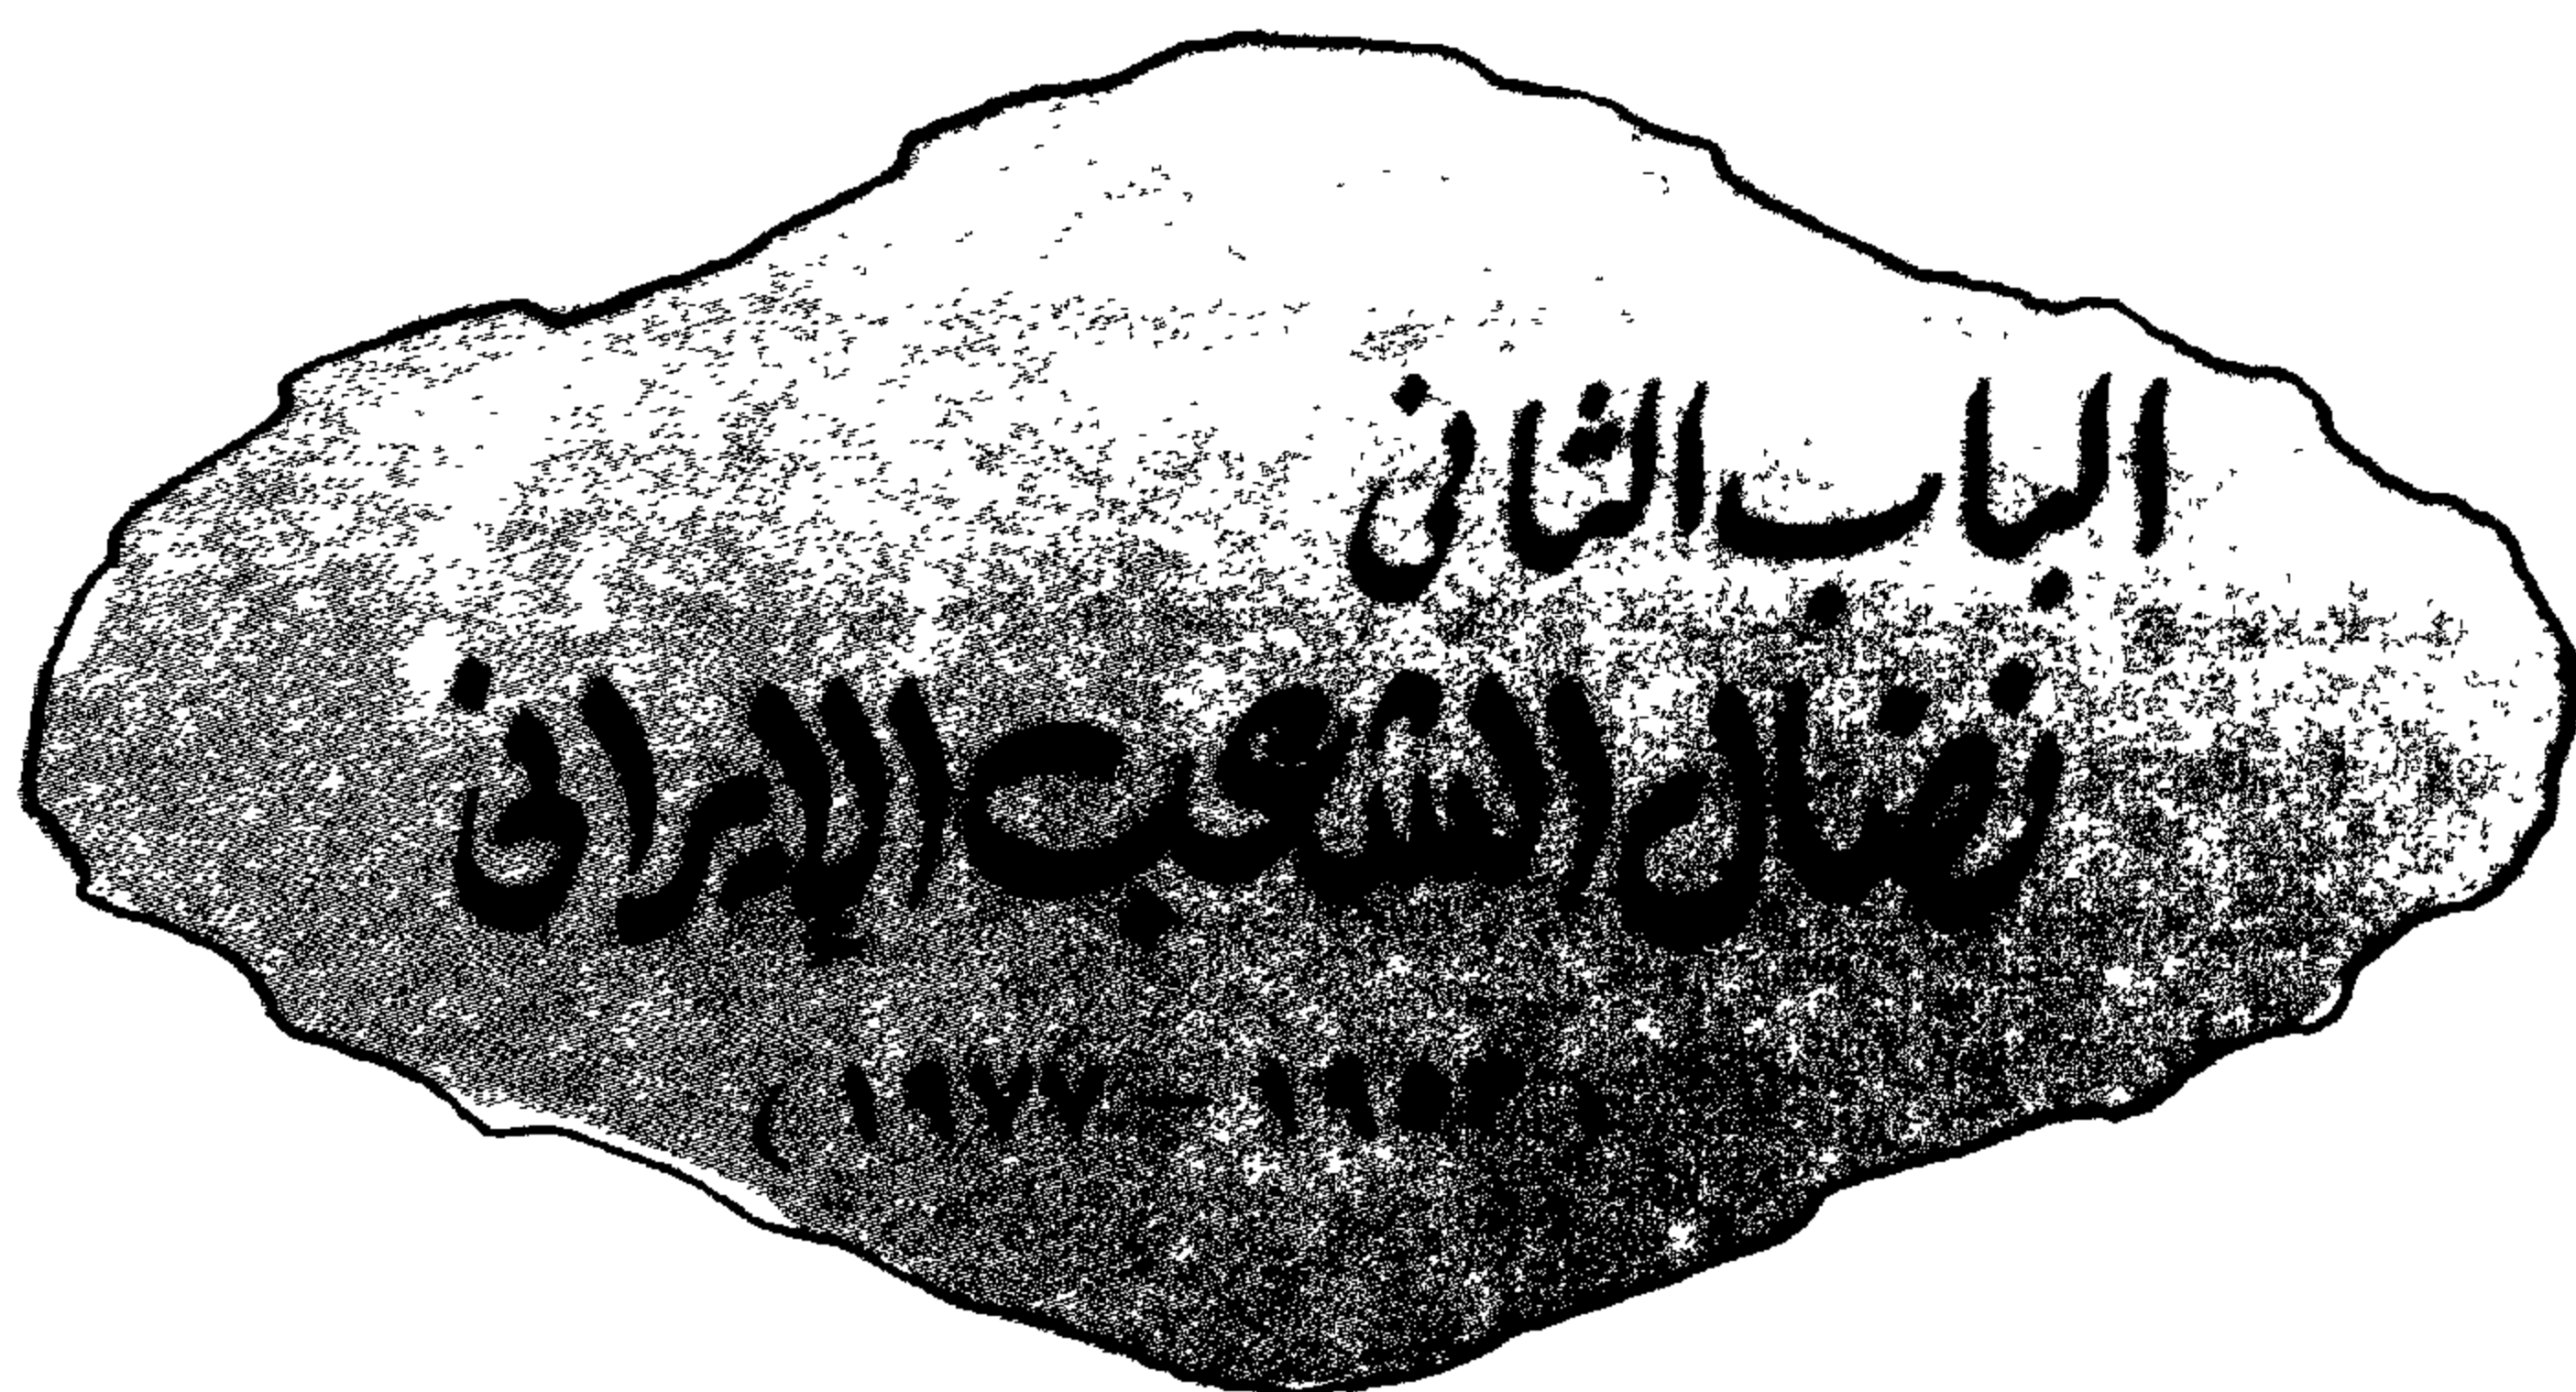 الباب الثانى
نضال الشعب الإيرانى
( ١٩٥٣ - ١٩٧٧ )